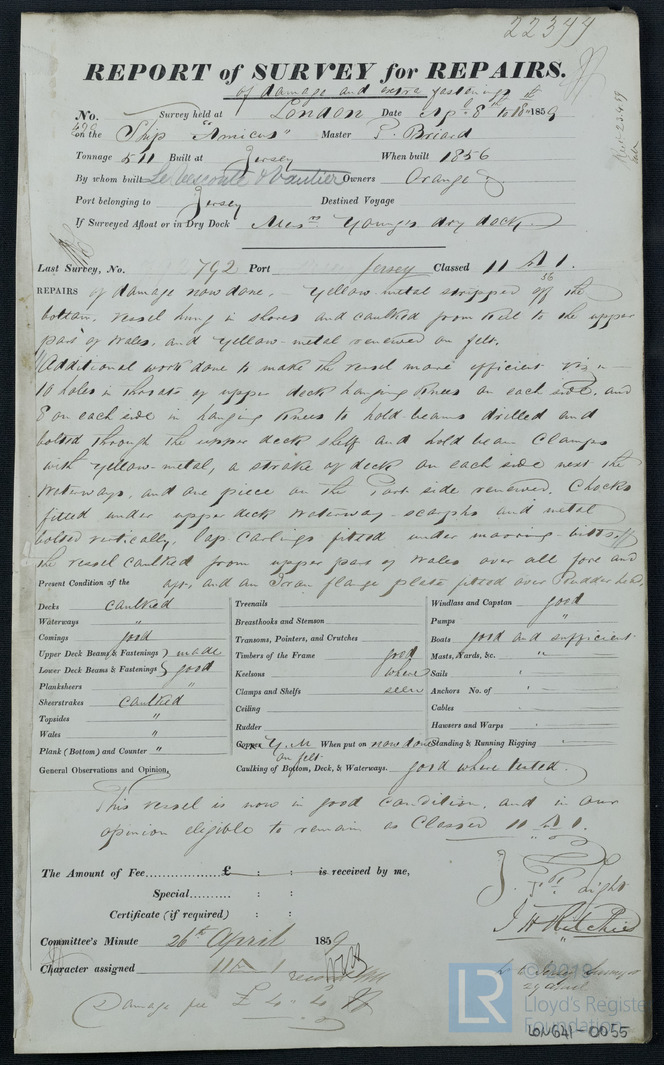 22344
REPORT of SURVEY for REPAIRS.
of damage and extra fastenings
No. Survey held at London Date Apl. 8th to 18th 1859
on the Ship "Amicus" Master P. Briard
Tonnage 511 Built at Jersey When built 1856
By whom built Le Vesconte & Vautier Owners Orange
Port belonging to Jersey Destined Voyage
If Surveyed Afloat or in Dry Dock Messrs Young's dry dock
Last Survey, No. 792 Port Jersey Classed 11 A 1.
REPAIRS of damage now done, - Yellow-metal stripped off the
bottom, vessel hung in shores and caulked from keel to the upper
part of Wales, and yellow-metal renewed on felt.
Additional work done to make the vessel more efficient Viz:-
10 holes in throats of upper deck hanging knees on each side, and
8 on each side in hanging knees to hold beams drilled and
bolted through the upper deck shelf and hold beam Clamps
with yellow-metal, a strake of deck on each side next the
Waterways, and one piece on the Port side renewed. Chocks
fitted under upper deck waterway scarphs and metal
bolted vertically, lap Carlings fitted under mooring-bitts,
the vessel caulked from upper part of Wales over all fore and
Present Condition of the aft, and an Iron flange plate fitted over Rudder head,
Decks caulked
Waterways "
Comings good
Upper Deck Beams & Fastenings } made
Lower Deck Beams & Fastenings } good
Planksheers "
Sheerstrakes caulked
Topsides "
Wales "
Plank (Bottom) and Counter "
Treenails
Breasthooks and Stemson
Transoms, Pointers, and Crutches
Timbers of the Frame good
Keelsons where
Clamps and Shelfs seen
Ceiling
Rudder
Copper Y.M When put on now done
on felt
Caulking of Bottom, Deck, & Waterways. good where tested.
Windlass and Capstan good
Pumps "
Boats good and sufficient
Masts, Yards, &c. "
Sails
Anchors No. of
Cables
Hawsers and Warps
Standing & Running Rigging
General Observations and Opinion,
This vessel is now in good condition, and in our
opinion eligible to remain as Classed 11 A 1.
The Amount of Fee £ : : is received by me,
Special : :
Certificate (if required) : :
Light
J H Ritchie
Committee's Minute 26th April 1859
Character assigned 11 A 1
Damage fee £ 4 " 4
29 April
© 2019
LR
Lloyd's Register
Foundation
LON641-0055